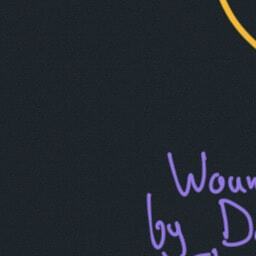 Woun
by Da